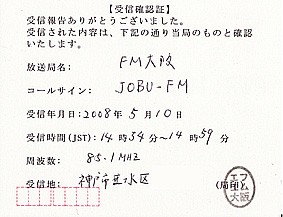 【受信確認証】
受信報告ありがとうございました。
受信された内容は、下記の通り当局のものと確認
いたします。
放送局名： FM大阪
コールサイン： JOBU-FM
受信年月日：2008年 5月10日
受信時間(JST)：14時54分〜14時59分
周波数： 85.1MHz
受信地： 神戸市垂水区 (局印)
エフエム大阪